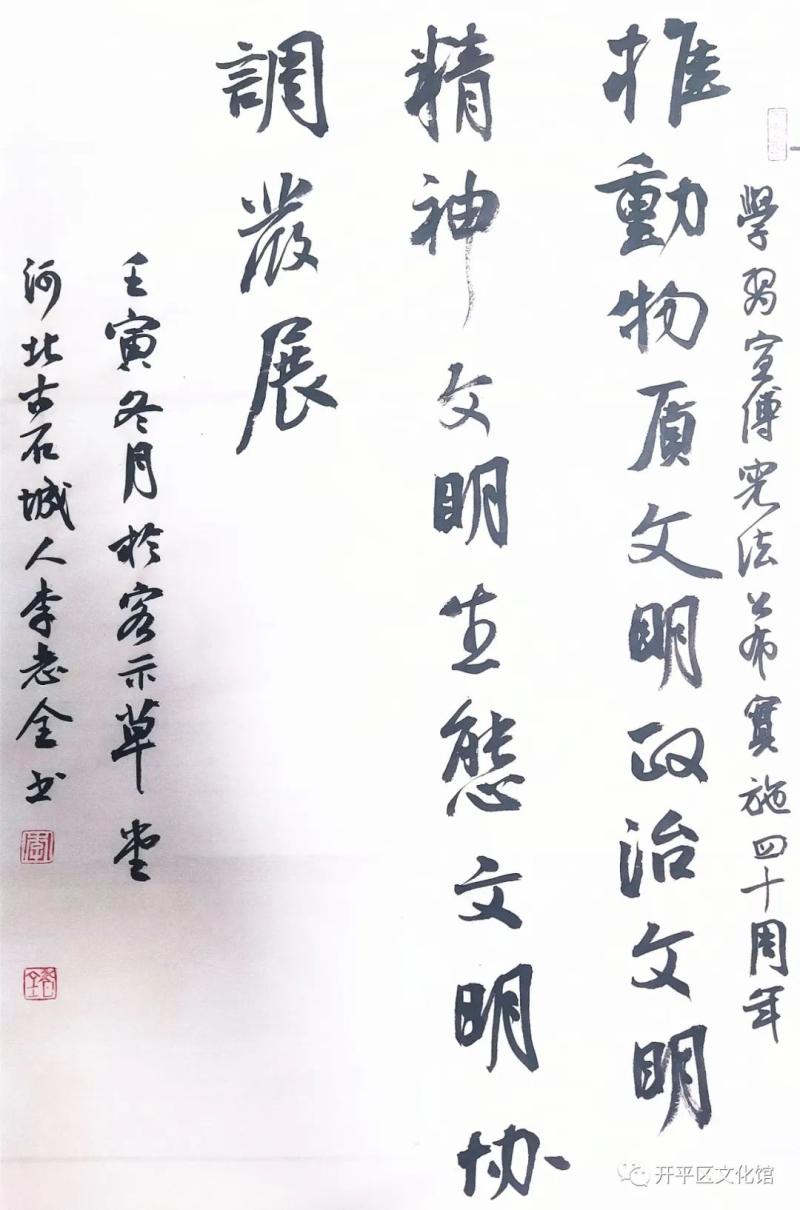 學習宣傳憲法公布實施四十周年
推動物質文明政治文明
精神文明生態文明协
調發展
壬寅冬月於容示草堂
河北古石城人李志全书
开平区文化馆